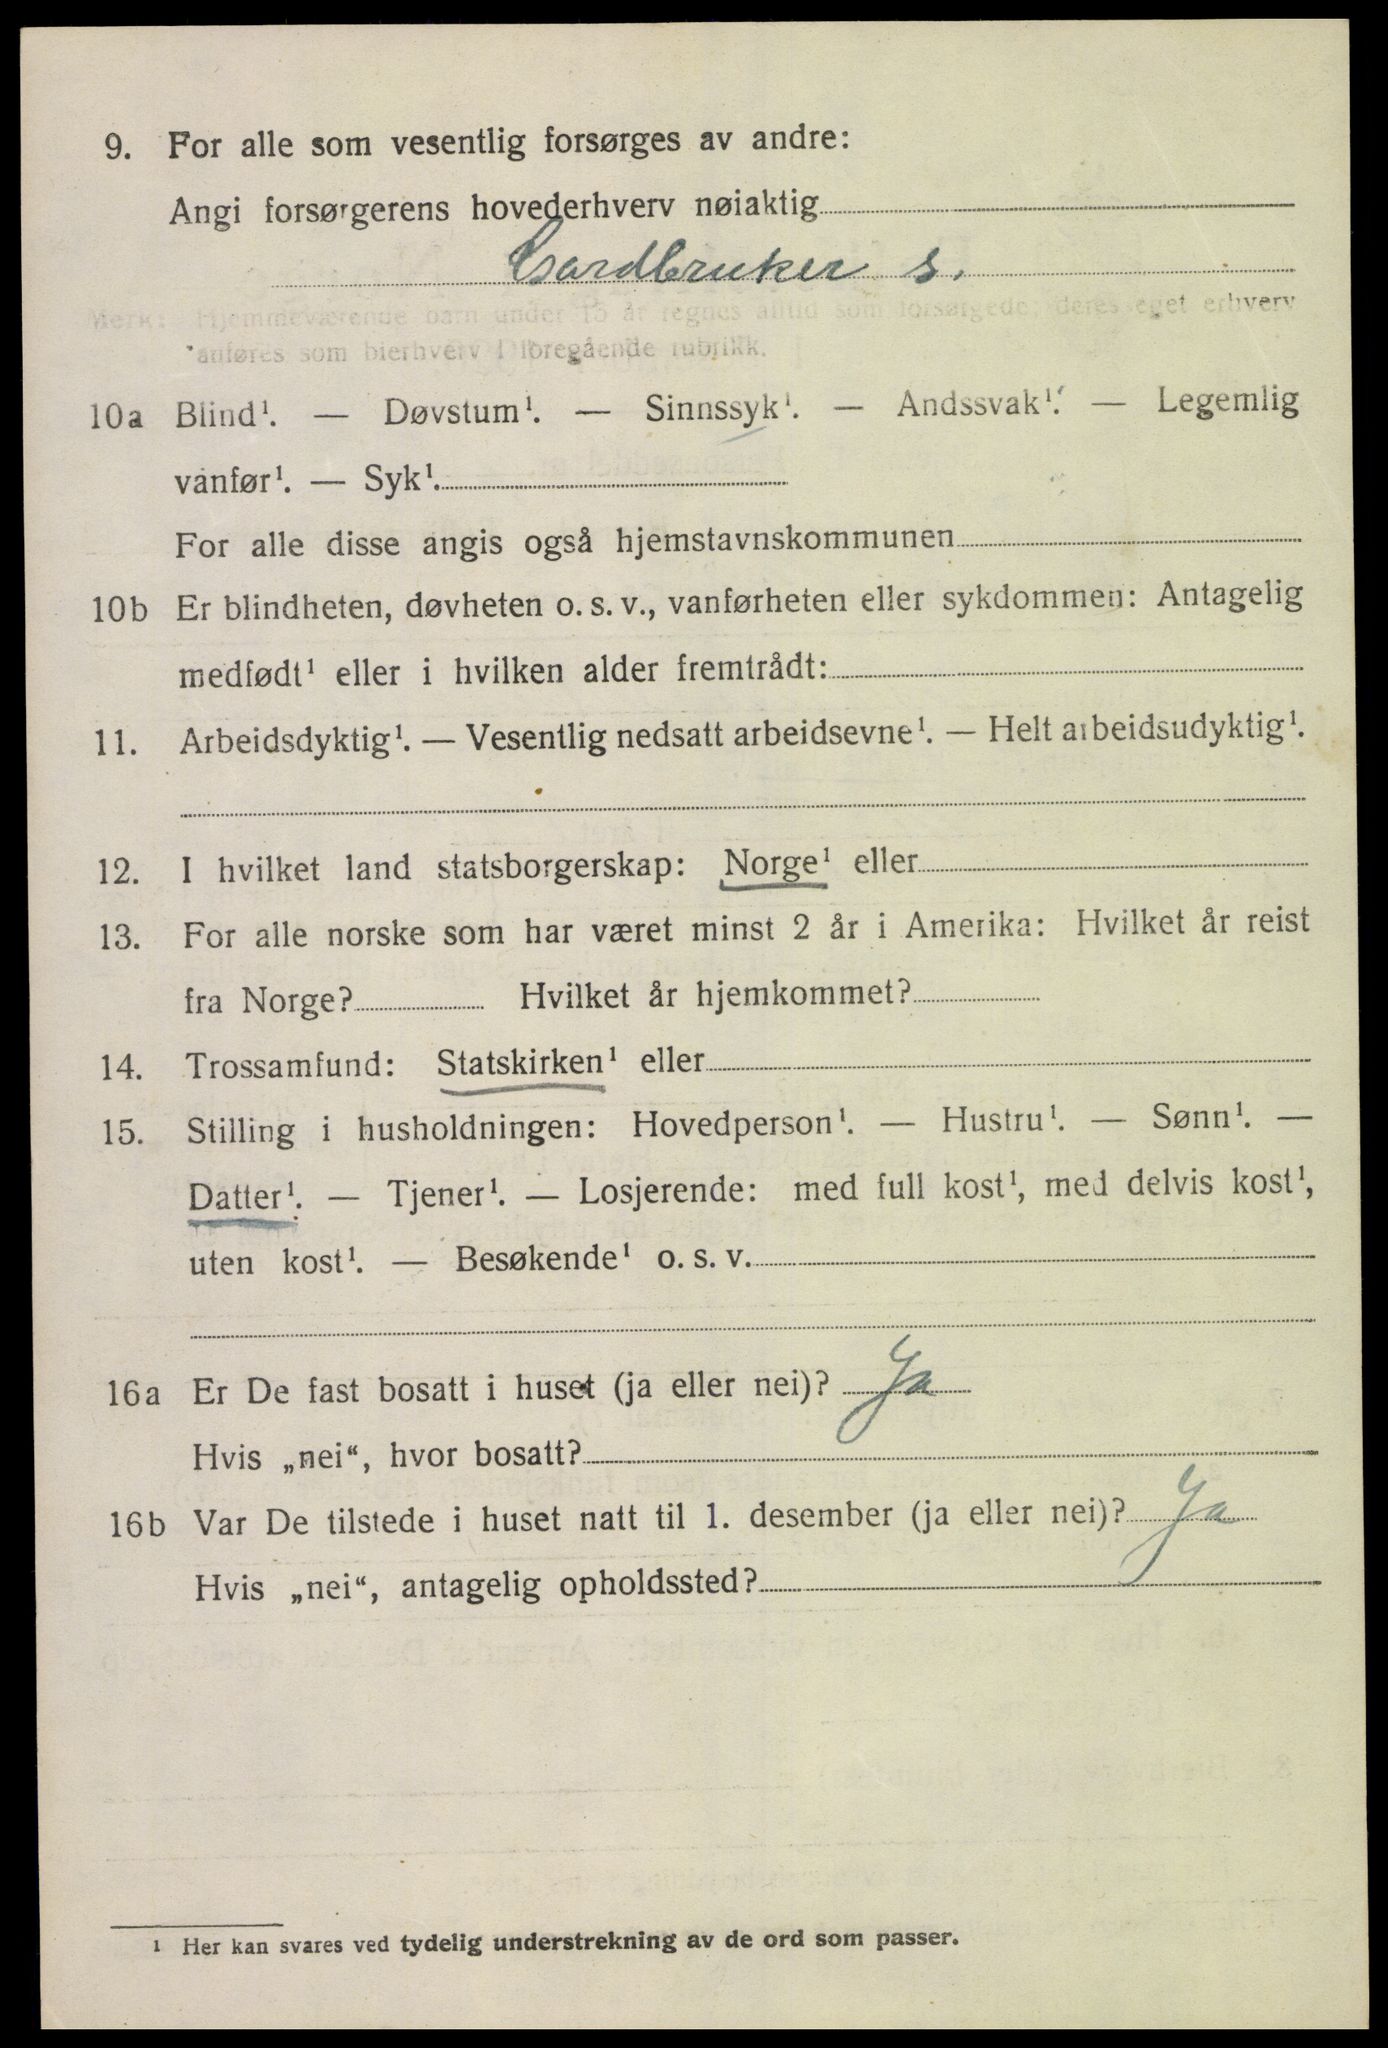 9. For alle som vesentlig forsørges av andre:
Angi forsørgerens hovederhverv nøiaktig
Gardbruker s.
Merk: Hjemmeværende barn under 15 år regnes alltid som forsørgede; deres eget erhverv
anføres som bierhverv i foregående rubrikk.
10a Blind¹. — Døvstum¹. — Sinnssyk¹. — Andssvak¹. — Legemlig
vanfør¹. — Syk¹.
For alle disse angis også hjemstavnskommunen
10b Er blindheten, døvheten o. s. v., vanførheten eller sykdommen: Antagelig
medfødt¹ eller i hvilken alder fremtrådt:
11. Arbeidsdyktig¹. — Vesentlig nedsatt arbeidsevne¹. — Helt arbeidsudyktig¹.
12. I hvilket land statsborgerskap: Norge¹ eller
13. For alle norske som har været minst 2 år i Amerika: Hvilket år reist
fra Norge? Hvilket år hjemkommet?
14. Trossamfund: Statskirken¹ eller
15. Stilling i husholdningen: Hovedperson¹. — Hustru¹. — Sønn¹. —
Datter¹. — Tjener¹. — Losjerende: med full kost¹, med delvis kost¹,
uten kost¹. — Besøkende¹ o. s. v.
16a Er De fast bosatt i huset (ja eller nei)? Ja
Hvis „nei“, hvor bosatt?
16b Var De tilstede i huset natt til 1. desember (ja eller nei)? Ja
Hvis „nei“, antagelig opholdssted?
¹ Her kan svares ved tydelig understrekning av de ord som passer.